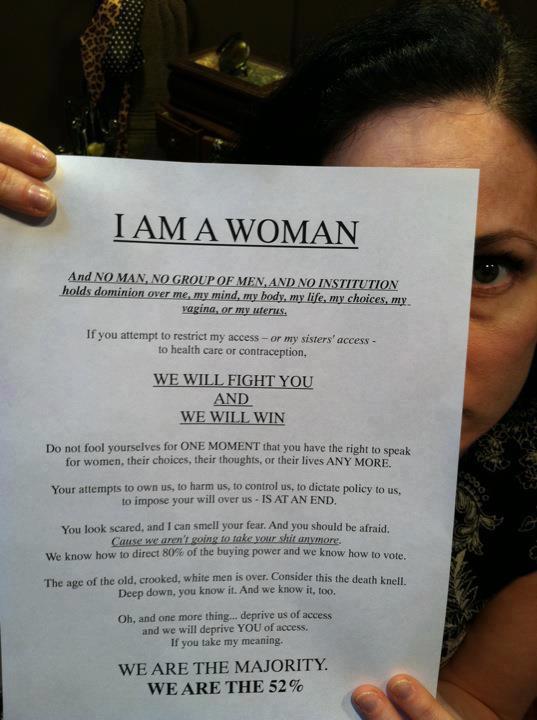 I AM A WOMAN
And NO MAN, NO GROUP OF MEN, AND NO INSTITUTION
holds dominion over me, my mind, my body, my life, my choices, my
vagina, or my uterus.
If you attempt to restrict my access – or my sisters' access -
to health care or contraception,
WE WILL FIGHT YOU
AND
WE WILL WIN
Do not fool yourselves for ONE MOMENT that you have the right to speak
for women, their choices, their thoughts, or their lives ANY MORE.
Your attempts to own us, to harm us, to control us, to dictate policy to us,
to impose your will over us - IS AT AN END.
You look scared, and I can smell your fear. And you should be afraid.
Cause we aren't going to take your shit anymore.
We know how to direct 80% of the buying power and we know how to vote.
The age of the old, crooked, white men is over. Consider this the death knell.
Deep down, you know it. And we know it, too.
Oh, and one more thing... deprive us of access
and we will deprive YOU of access.
If you take my meaning.
WE ARE THE MAJORITY.
WE ARE THE 52%